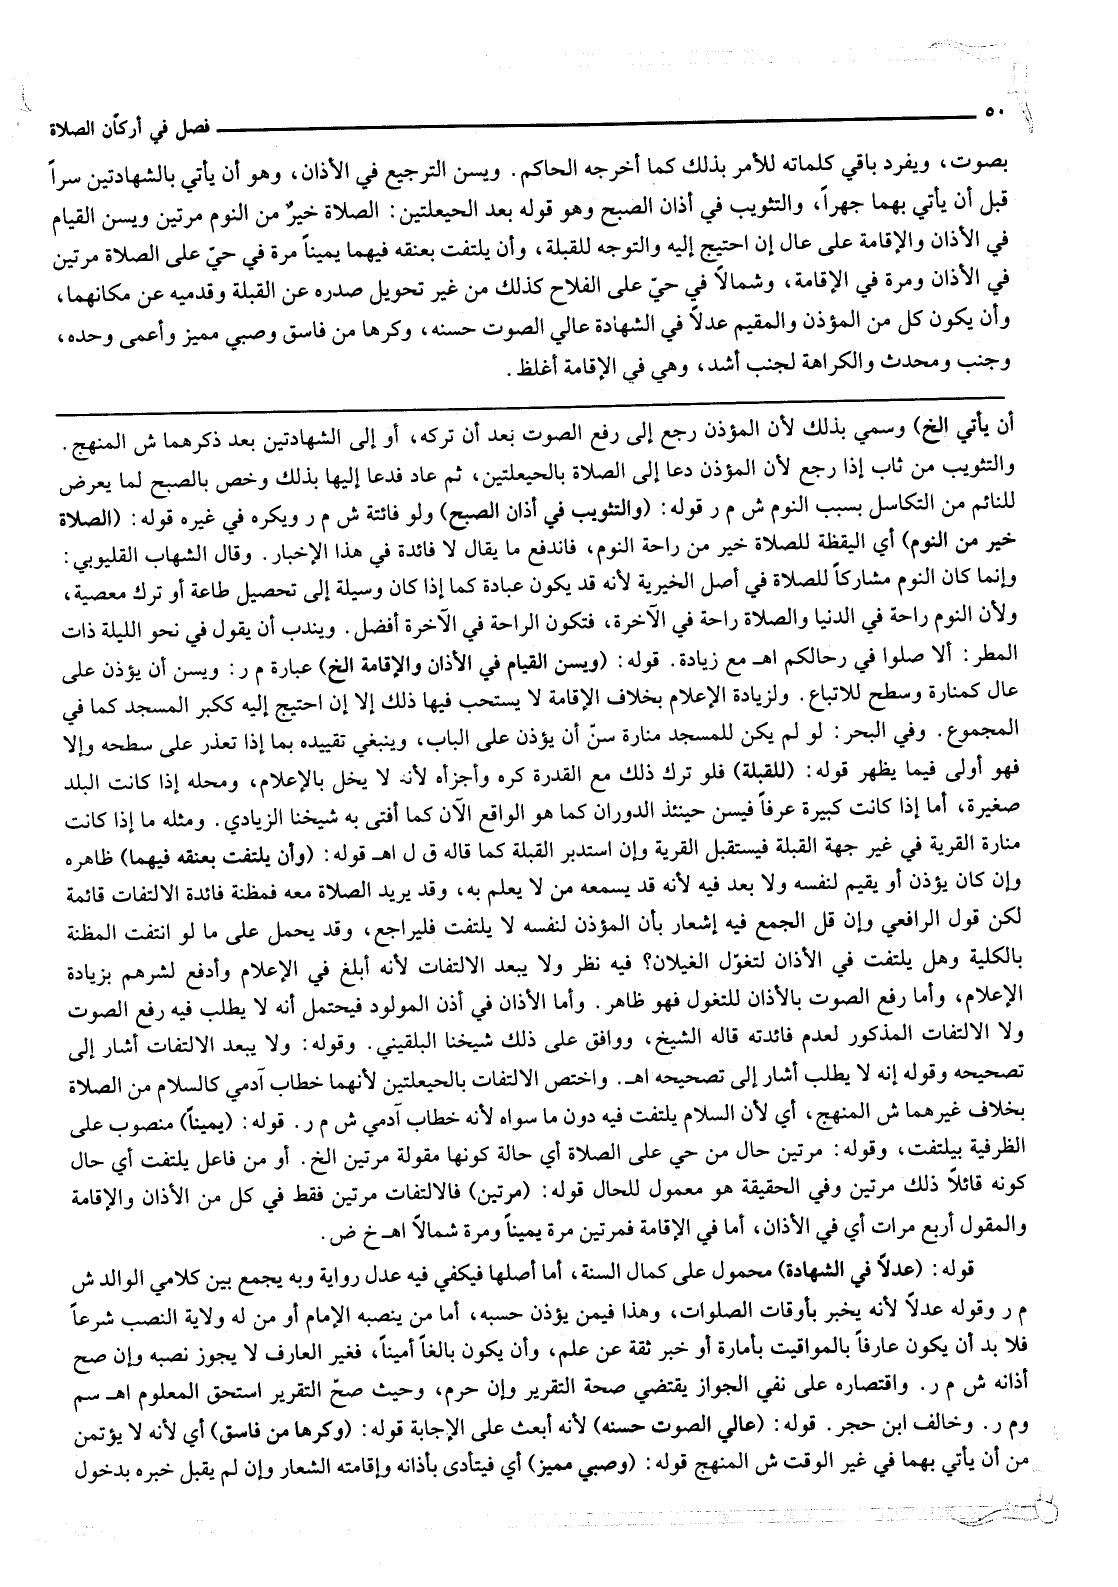 ٥٠ فصل في أركان الصلاة
بصوت، ويفرد باقي كلماته للأمر بذلك كما أخرجه الحاكم. ويسن الترجيع في الأذان، وهو أن يأتي بالشهادتين سراً
قبل أن يأتي بهما جهراً، والتثويب في أذان الصبح وهو قوله بعد الحيعلتين: الصلاة خيرٌ من النوم مرتين ويسن القيام
في الأذان والإقامة على عال إن احتيج إليه والتوجه للقبلة، وأن يلتفت بعنقه فيهما يميناً مرة في حيّ على الصلاة مرتين
في الأذان ومرة في الإقامة، وشمالاً في حيّ على الفلاح كذلك من غير تحويل صدره عن القبلة وقدميه عن مكانهما،
وأن يكون كل من المؤذن والمقيم عدلاً في الشهادة عالي الصوت حسنه، وكرها من فاسق وصبي مميز وأعمى وحده،
وجنب ومحدث والكراهة لجنب أشد، وهي في الإقامة أغلظ.
أن يأتي الخ) وسمي بذلك لأن المؤذن رجع إلى رفع الصوت بعد أن تركه، أو إلى الشهادتين بعد ذكرهما ش المنهج.
والتثويب من ثاب إذا رجع لأن المؤذن دعا إلى الصلاة بالحيعلتين، ثم عاد فدعا إليها بذلك وخص بالصبح لما يعرض
للنائم من التكاسل بسبب النوم ش م ر قوله: (والتثويب في أذان الصبح) ولو فائتة ش م ر ويكره في غيره قوله: (الصلاة
خير من النوم) أي اليقظة للصلاة خير من راحة النوم، فاندفع ما يقال لا فائدة في هذا الإخبار. وقال الشهاب القليوبي:
وإنما كان النوم مشاركاً للصلاة في أصل الخيرية لأنه قد يكون عبادة كما إذا كان وسيلة إلى تحصيل طاعة أو ترك معصية،
ولأن النوم راحة في الدنيا والصلاة راحة في الآخرة، فتكون الراحة في الآخرة أفضل. ويندب أن يقول في نحو الليلة ذات
المطر: ألا صلوا في رحالكم اهـ مع زيادة. قوله: (ويسن القيام في الأذان والإقامة الخ) عبارة م ر: ويسن أن يؤذن على
عال كمنارة وسطح للاتباع. ولزيادة الإعلام بخلاف الإقامة لا يستحب فيها ذلك إلا إن احتيج إليه ككبر المسجد كما في
المجموع. وفي البحر: لو لم يكن للمسجد منارة سنّ أن يؤذن على الباب، وينبغي تقييده بما إذا تعذر على سطحه وإلا
فهو أولى فيما يظهر قوله: (للقبلة) فلو ترك ذلك مع القدرة كره وأجزأه لأنه لا يخل بالإعلام، ومحله إذا كانت البلد
صغيرة، أما إذا كانت كبيرة عرفاً فيسن حينئذ الدوران كما هو الواقع الآن كما أفتى به شيخنا الزيادي. ومثله ما إذا كانت
منارة القرية في غير جهة القبلة فيستقبل القرية وإن استدبر القبلة كما قاله ق ل اهـ قوله: (وأن يلتفت بعنقه فيهما) ظاهره
وإن كان يؤذن أو يقيم لنفسه ولا بعد فيه لأنه قد يسمعه من لا يعلم به، وقد يريد الصلاة معه فمظنة فائدة الالتفات قائمة
لكن قول الرافعي وإن قل الجمع فيه إشعار بأن المؤذن لنفسه لا يلتفت فليراجع، وقد يحمل على ما لو انتفت المظنة
بالكلية وهل يلتفت في الأذان لتغوّل الغيلان؟ فيه نظر ولا يبعد الالتفات لأنه أبلغ في الإعلام وأدفع لشرهم بزيادة
الإعلام، وأما رفع الصوت بالأذان للتغول فهو ظاهر. وأما الأذان في أذن المولود فيحتمل أنه لا يطلب فيه رفع الصوت
ولا الالتفات المذكور لعدم فائدته قاله الشيخ، ووافق على ذلك شيخنا البلقيني. وقوله: ولا يبعد الالتفات أشار إلى
تصحيحه وقوله إنه لا يطلب أشار إلى تصحيحه اهـ. واختص الالتفات بالحيعلتين لأنهما خطاب آدمي كالسلام من الصلاة
بخلاف غيرهما ش المنهج، أي لأن السلام يلتفت فيه دون ما سواه لأنه خطاب آدمي ش م ر. قوله: (يميناً) منصوب على
الظرفية بيلتفت، وقوله: مرتين حال من حي على الصلاة أي حالة كونها مقولة مرتين الخ. أو من فاعل يلتفت أي حال
كونه قائلاً ذلك مرتين وفي الحقيقة هو معمول للحال قوله: (مرتين) فالالتفات مرتين فقط في كل من الأذان والإقامة
والمقول أربع مرات أي في الأذان، أما في الإقامة فمرتين مرة يميناً ومرة شمالاً اهـ خ ض.
قوله: (عدلاً في الشهادة) محمول على كمال السنة، أما أصلها فيكفي فيه عدل رواية وبه يجمع بين كلامي الوالد ش
م ر وقوله عدلاً لأنه يخبر بأوقات الصلوات، وهذا فيمن يؤذن حسبه، أما من ينصبه الإمام أو من له ولاية النصب شرعاً
فلا بد أن يكون عارفاً بالمواقيت بأمارة أو خبر ثقة عن علم، وأن يكون بالغاً أميناً، فغير العارف لا يجوز نصبه وإن صح
أذانه ش م ر. واقتصاره على نفي الجواز يقتضي صحة التقرير وإن حرم، وحيث صحّ التقرير استحق المعلوم اهـ سم
وم ر. وخالف ابن حجر. قوله: (عالي الصوت حسنه) لأنه أبعث على الإجابة قوله: (وكرها من فاسق) أي لأنه لا يؤتمن
من أن يأتي بهما في غير الوقت ش المنهج قوله: (وصبي مميز) أي فيتأدى بأذانه وإقامته الشعار وإن لم يقبل خبره بدخول